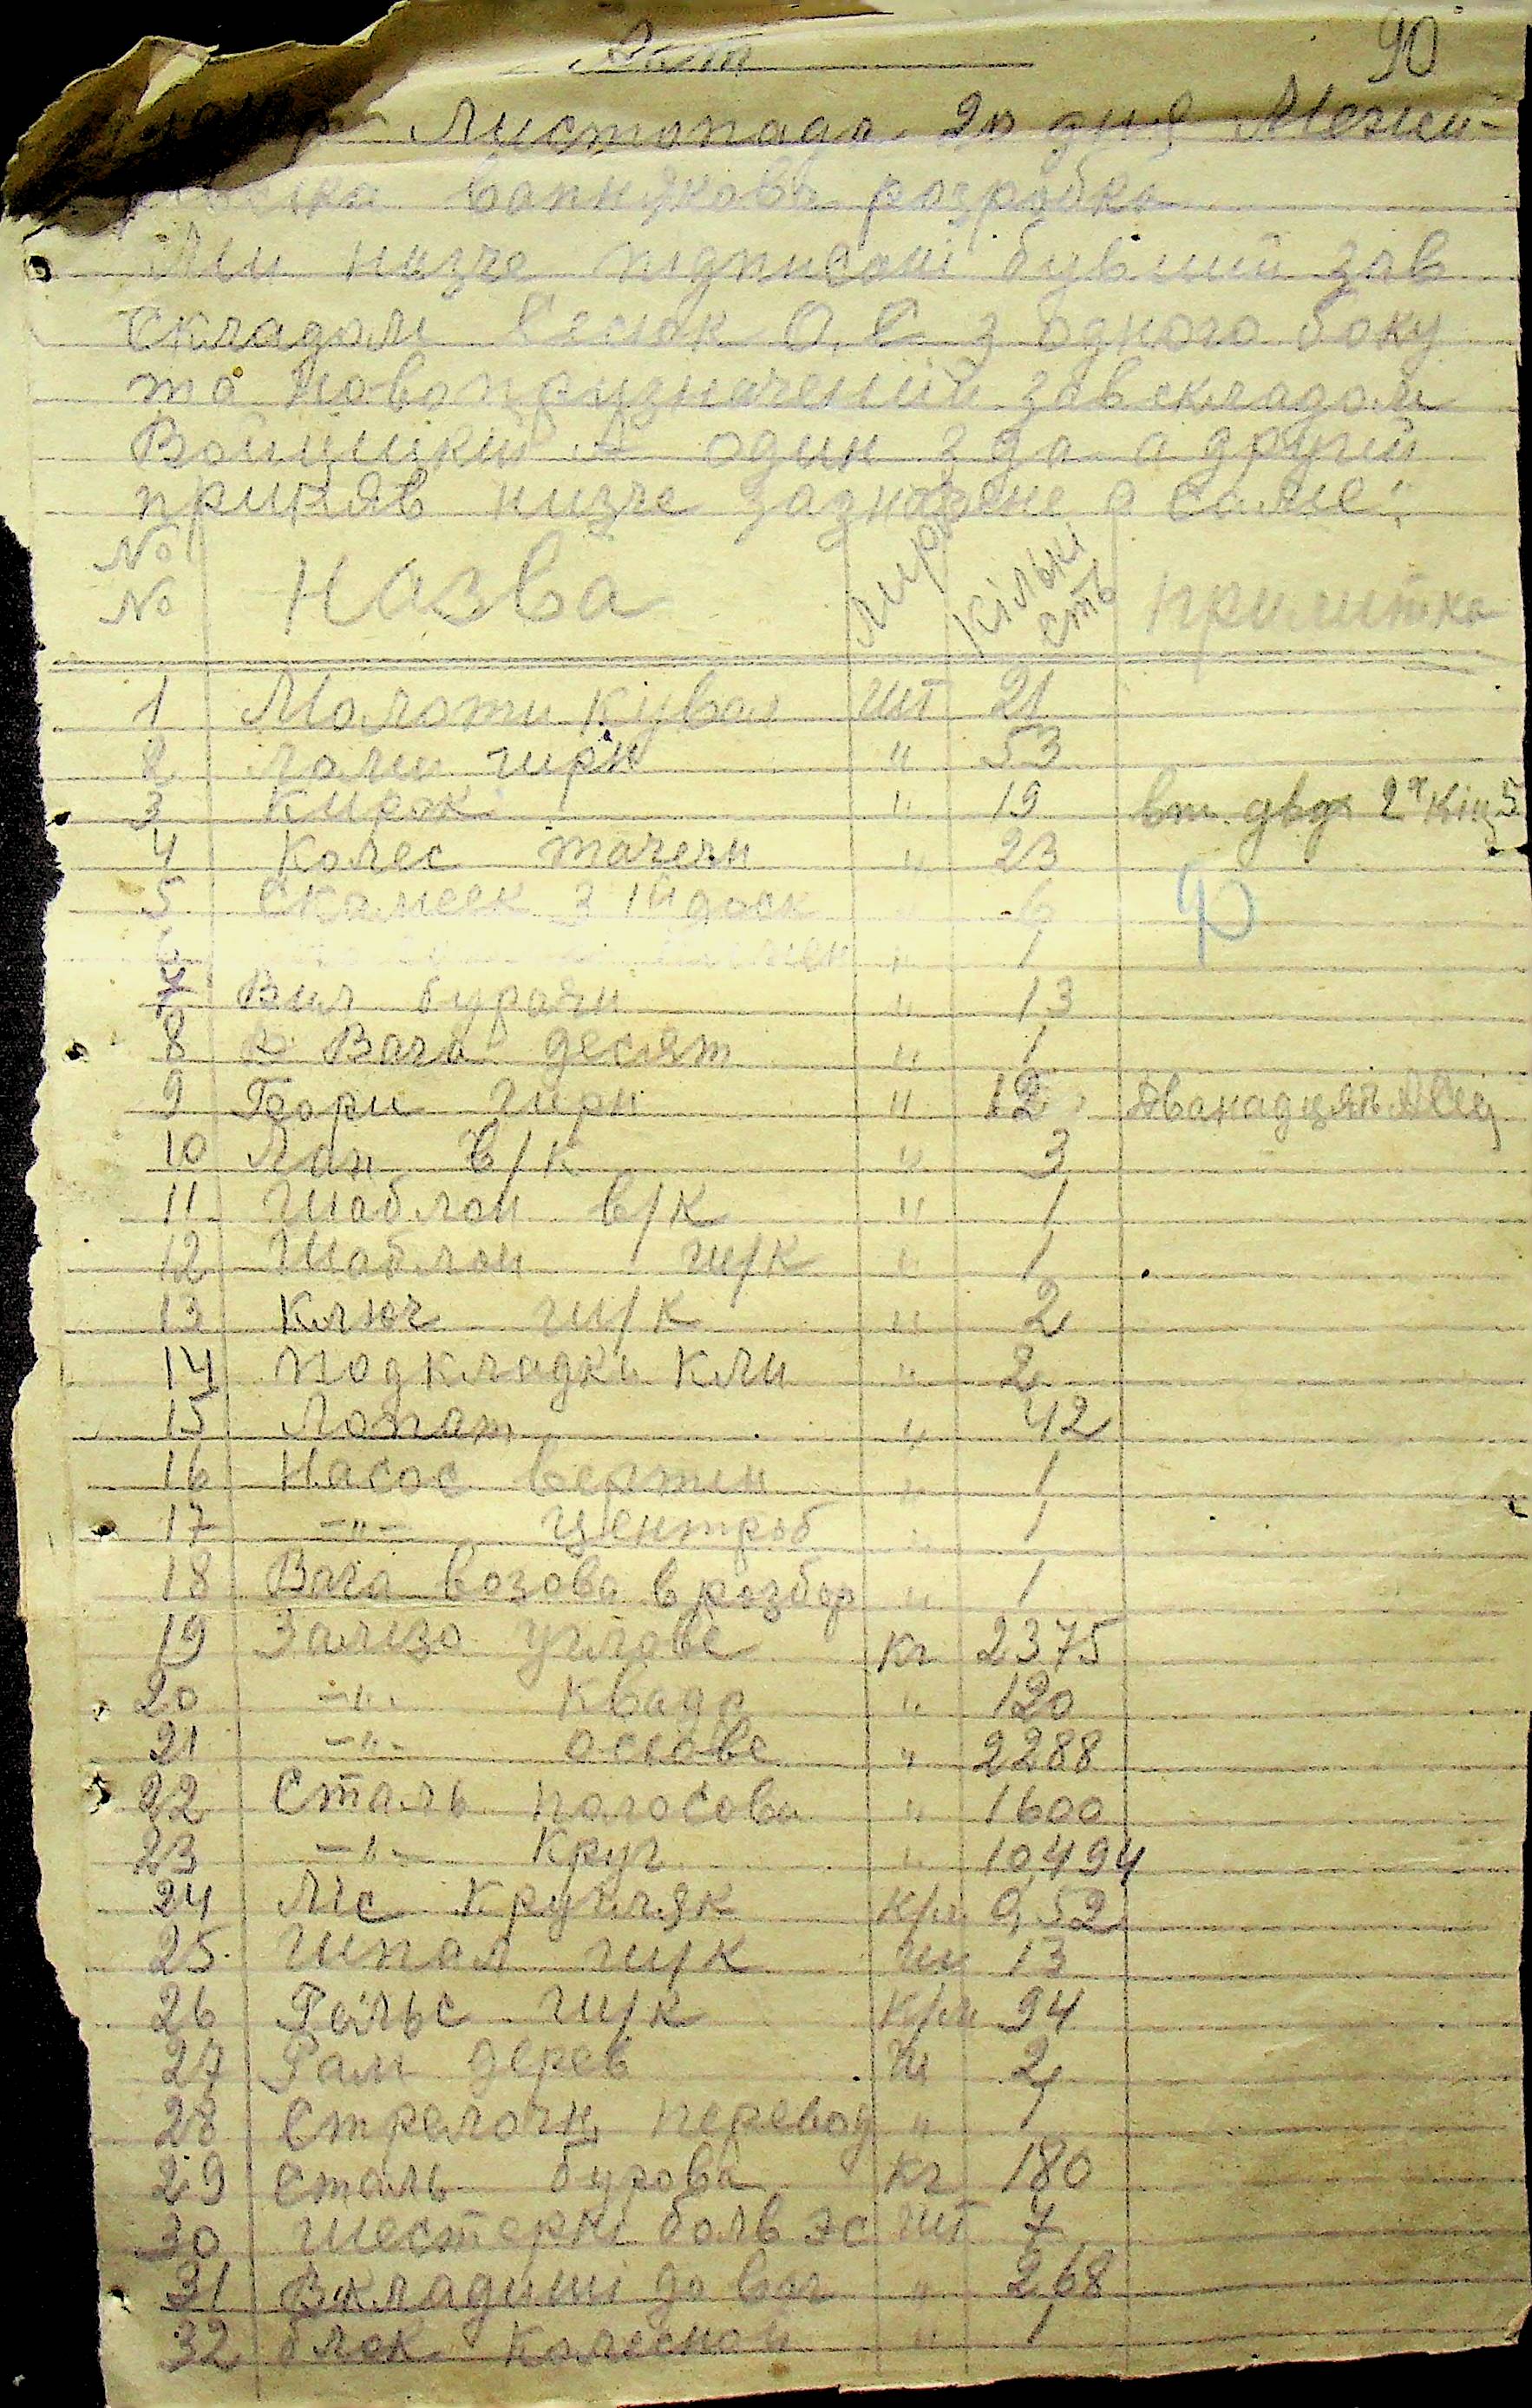 Акт
90
Листопада 20 дня Межи-
вапнякова розробка
Ми низче підписані бувший зав
складом О. С з одного боку
та новопризначений завскладом
А один здав а другий
приняв низче зазначене а саме:
№ № Назва Мира Кількість примітка
1 Молоти кувал шт 21
2 ломи гирн " 53
3 Кирок " 19 вт. двох 2х Кінц 5
4 Колес тачечн " 23
5 Скамеек з 1й доск " 6
40
6 " 1
7 Вил бурачн " 13
8 Вага десят " 1
9 гирн " 12 дванадцять
10 в/к " 3
11 Шаблон в/к " 1
12 Шаблон ш/к " 1
13 Ключ ш/к " 2
14 подкладки кли " 2
15 Лопат " 42
16 Насос вертик " 1
17 -"- центроб " 1
18 Вага возова в розбор " 1
19 Залізо углове кг 2375
20 -"- квадр " 120
21 -"- " 2288
22 Сталь полосова " 1600
23 -"- Круг " 10494
24 Ліс кругляк к/м 0,52
25 Шпал ш/к шт 13
26 Рельс ш/к к/м 94
27 Рам дерев Ш 2
28 Стрелочн перевод " 1
29 Сталь бурова кг 180
30 шестерні шт 7
31 Вкладиші до ваг " 268
32 блок колесной " 1